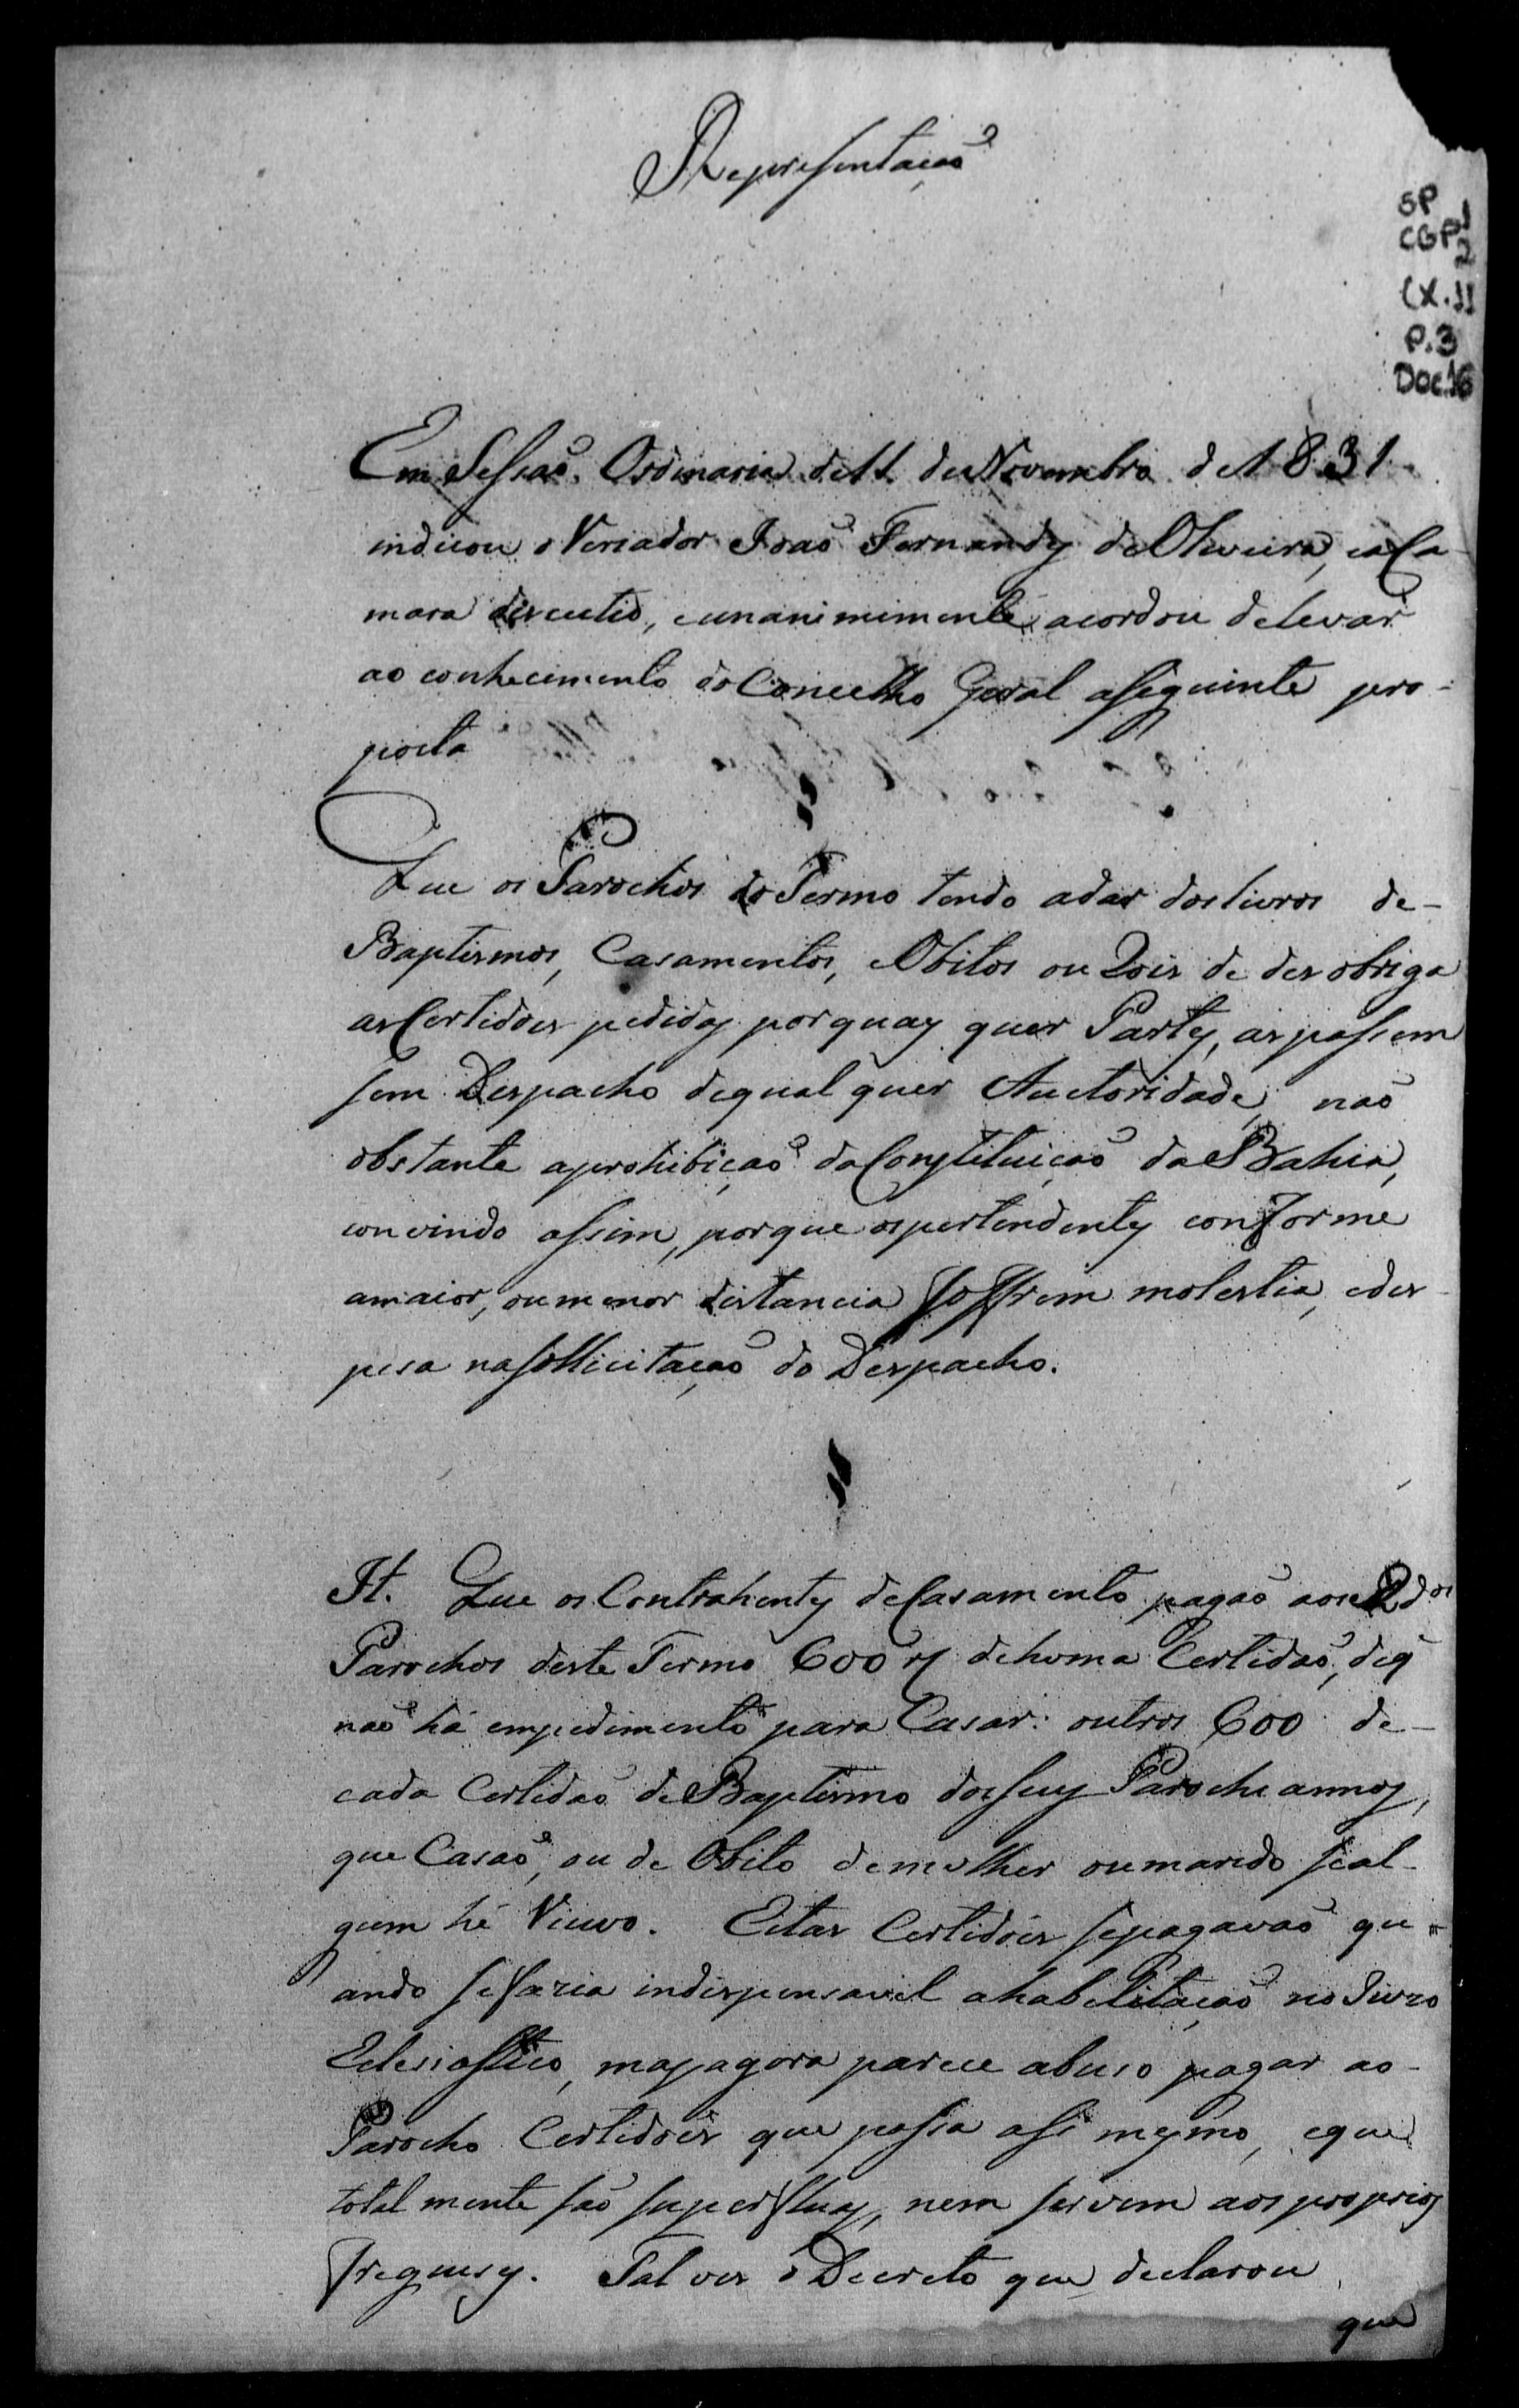 Representação
SP
CGP1
2
CX.11
P.3
Doc.16
Em Sessaõ Ordinaria de 11 de Novembro de 1831
indicou o Veriador Joaõ Fernandes de Oliveira, ea Ca-
mara discutio, e unanimimente acordou de levar
ao conhecimento do Concelho Geral a seguinte pro-
posta
Que os Parochos do Termo tendo adar dos livros de-
Baptismos, Casamentos, e Obitos ou Róis de desobriga
as Certidões pedidas por quaes quer Partes, as passem
sem Despacho de qual quer Auctoridade, naõ
obstante a prohibiçaõ da Constituiçaõ da Bahia,
convindo assim, porque os pertendentes conforme
a maior, ou menor distancia soffrem molestia, e des-
pesa na sollicitaçaõ do Despacho.
It. Que os Contrahentes de Casamento pagaõ aos Rdos
Parochos deste Termo 600 rs de huma Certidaõ, de q̃
naõ há empedimento para Casar: outros 600 de-
cada Certidaõ de Baptismo dos seus Parochiannos,
que Casaõ, ou de Obito de mulher ou marido se al-
gum hé Viuvo. Estas Certidões se pagavaõ qu-
ando se fazia indispensavel a habelitaçaõ no Juizo
Eclesiastico, mas agora parece abuso pagar ao-
Parocho Certidões que passa asi mesmo, e que
total mente saõ superfluas, nem servem aos proprios
freguesis. Tal ves o Decreto que declarou
que